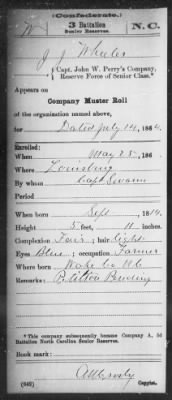 (Confederate.)
W 3 Battalion N.C.
Senior Reserves.
J J Wheeler
Capt. John W. Perry's Company,
Reserve Force of Senior Class.*
Appears on
Company Muster Roll
of the organization named above,
for Dated July 14, 1864.
Enrolled:
When May 25, 186
Where Louisburg
By whom Capt
Period
When born Sept 1814.
Height 5 feet, 11 inches.
Complexion Fair; hair light
Eyes Blue; occupation Farmer
Where born Wake Co NC
Remarks:
*This company subsequently became Company A, 3d
Battalion North Carolina Senior Reserves.
Book mark:
(642) Copyist.